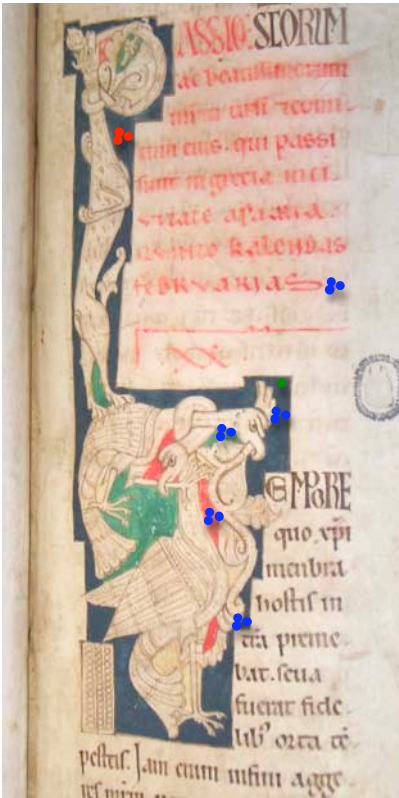 PASSIO: SC̄ORUM
ac beatissimorum
tum eius. qui passi
sunt in grecia in ci
vitate apamia.
quinto kalendas
FEBRVARIAS
TEMPORE
quo xp̄i
menbra
hostis in
tra preme
bat. seua
fuerat fide
lib' orta tē
pestas. Jam enim